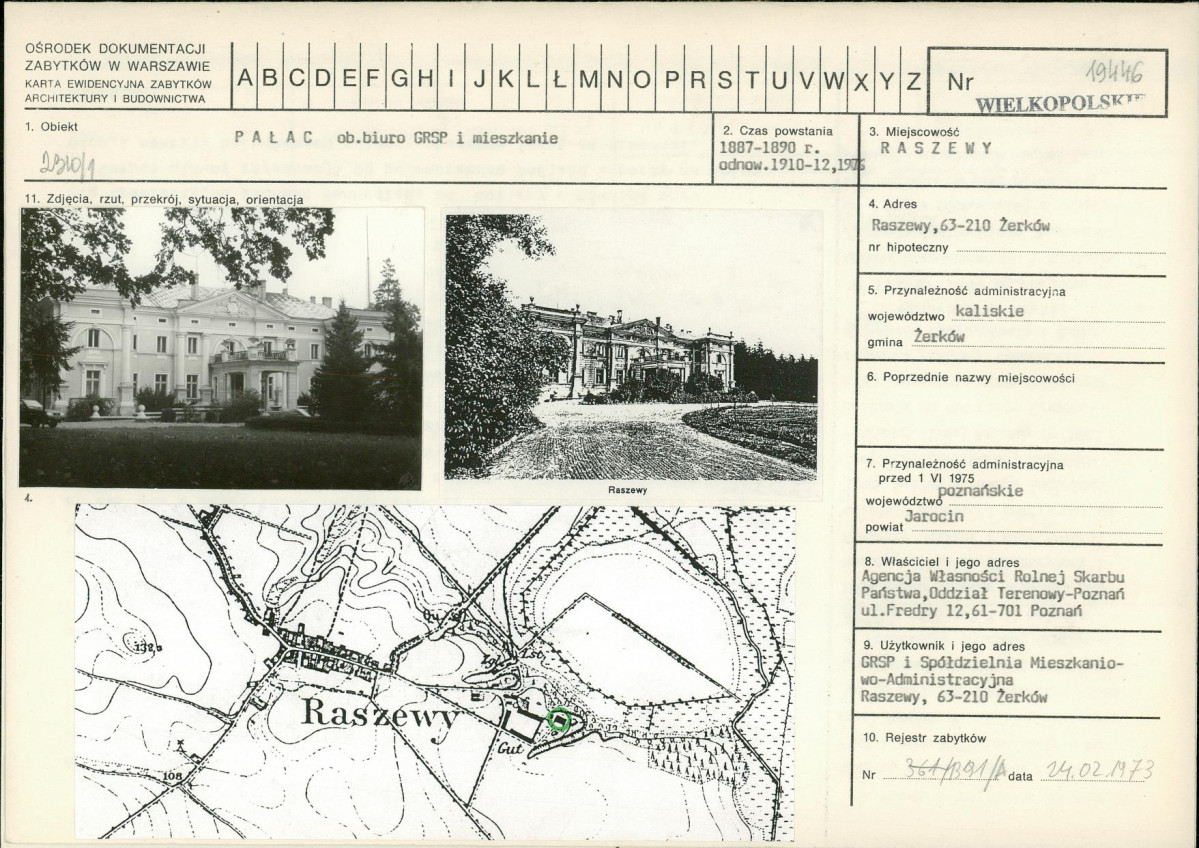 OŚRODEK DOKUMENTACJI
ZABYTKÓW W WARSZAWIE
KARTA EWIDENCYJNA ZABYTKÓW
ARCHITEKTURY I BUDOWNICTWA
A B C D E F G H I J K L Ł M N O P R S T U V W X Y Z
Nr 19446
WIELKOPOLSKIE
1. Obiekt
PAŁAC ob.biuro GRSP i mieszkanie
2310/1
2. Czas powstania
1887-1890 r.
odnow.1910-12,1976
3. Miejscowość
RASZEWY
11. Zdjęcia, rzut, przekrój, sytuacja, orientacja
Raszewy
1.
132
Raszewy
Gut
108
4. Adres
Raszewy,63-210 Żerków
nr hipoteczny
5. Przynależność administracyjna
województwo kaliskie
gmina Żerków
6. Poprzednie nazwy miejscowości
7. Przynależność administracyjna
przed 1 VI 1975
województwo poznańskie
powiat Jarocin
8. Właściciel i jego adres
Agencja Własności Rolnej Skarbu
Państwa,Oddział Terenowy-Poznań
ul.Fredry 12,61-701 Poznań
9. Użytkownik i jego adres
GRSP i Spółdzielnia Mieszkanio-
wo-Administracyjna
Raszewy, 63-210 Żerków
10. Rejestr zabytków
Nr data 24.02.1973